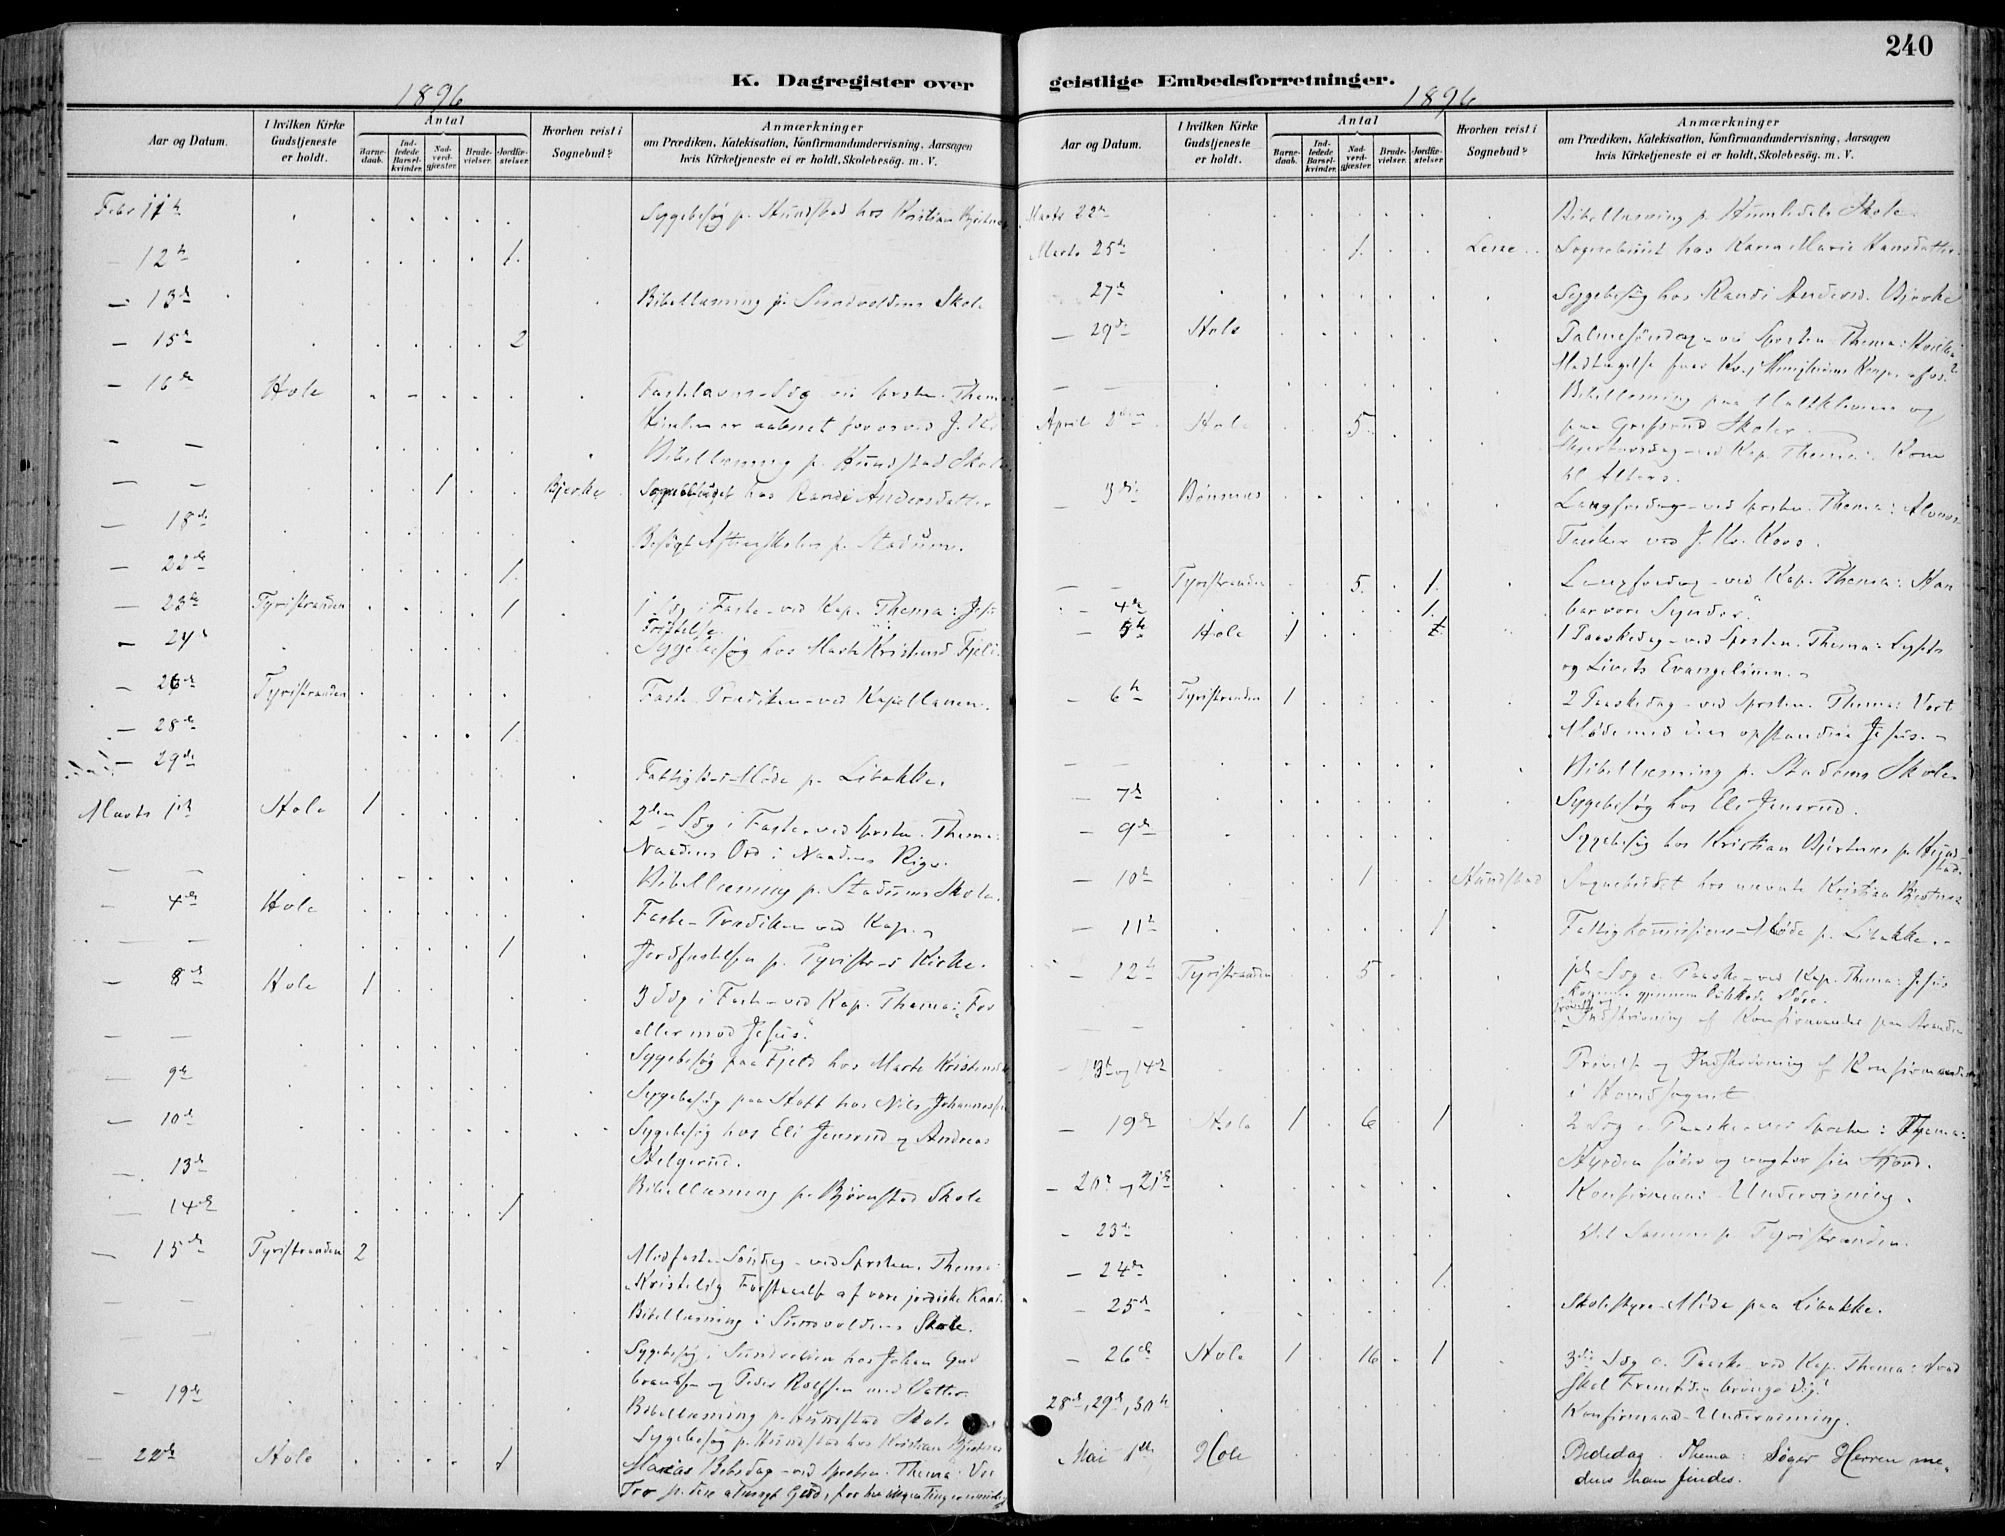 240
K. Dagregister over geistlige Embedsforretninger.
1896
Aar og Datum.
I hvilken Kirke Gudstjeneste er holdt.
Antal
Barnedaab.
Indledede Barselkvinder.
Nadverdgjæster.
Brudevielser.
Jordfæstelser.
Hvorhen reist i Sognebud?
Anmærkninger
om Prædiken, Katekisation, Konfirmandundervisning, Aarsagen
hvis Kirketjeneste ei er holdt, Skolebesög. m. V.
Febr 11te Sygebesøg p. Hundstad hos Kristian
— 12te 1.
— 13de Bibellæsning p. Sundvoldens Skole
— 15de 2
— 16de Hole Fastelavns-Sdg ved Sprsten. Thema:
Kirken er aabnet for os ved J. Kr.
— — Bibellæsning p. Hundstad Skole.
— — 1 Bjerke Sognebudet hos Randi Andersdatter
— 18de Besøgt Aftenskolen p. Stadum.
— 22de 1.
— 23de Tyristranden 1 1 Sdg i Faste - ved Kap. Thema: Jesu
Fristelse.
— 24 Sygebesøg hos Marte Kristensd Fjeld
— 26de Tyristranden Faste-Prædiken - ved Kapellanen.
— 28de 1.
— 29de Fattigk-s-Møde p. Libakke.
Marts 1ste Hole 1 2den Sdg i Faste ved Sprsten. Thema:
Naadens Ord i Naadens Rige.
— — Bibellæsning p. Stadums Skole.
— 4de Hole Faste-Prædiken ved Kap.
— — 1 Jordfæstelse p. Tyristr-s Kirke.
— 8de Hole 1 3 Sdg i Faste - ved Kap. Thema: "For
eller mod Jesus".
— — Sygebesøg paa Fjeld hos Marte
— 9de Sygebesøg paa hos Nils
— 10de Sygebesøg hos Eli Jensrud og Andreas
Helgerud.
— 13de Bibellæsning p. Bjørnstad Skole
— 14de 1
— 15de Tyristranden 2 Midfaste-Søndag - ved Sprsten. Thema:
Kristelig af vore jordiske
— — Bibellæsning i Sundvoldens Skole.
— — Sygebesøg i Sundvolden hos Johan Gud
brandsen og Peder Rolfsen med Datter
— 19de Bibellæsning p. Hundstad Skole
Sygebesøg p. Hundstad hos Kristian
— 22de Hole 1 Marias Bebdag - ved Sprsten. Thema: Vor
Tro p. den almægt Gud, for hvem ingen Ting er umulig
1896
Aar og Datum.
I hvilken Kirke Gudstjeneste er holdt.
Antal
Barnedaab.
Indledede Barselkvinder.
Nadverdgjæster.
Brudevielser.
Jordfæstelser.
Hvorhen reist i Sognebud?
Anmærkninger
om Prædiken, Katekisation, Konfirmandundervisning, Aarsagen
hvis Kirketjeneste ei er holdt, Skolebesög. m. V.
Marts 22de Bibellæsning p. Humledals Skole.
Marts 25de 1. Leine Sognebudet hos Karen Marie Hansdatter
27de Sygebesøg hos Randi Andersd. Bjerke
— 29de Hole Palmesøndag - ved Sprsten Thema:
Modtagelse
— — Bibellæsning paa og
paa Skoler.
April 2den Hole 5. Skjærtorsdag - ved Kap. Thema: Kom
til Alters.
— 3die Bønsnes Langfredag - ved Sprsten. Thema:
Tanker ved J. Kr. Kors.
— — Tyristranden 5. 1. Langfredag - ved Kap. Thema: Han
bar vore Synder."
— 4de 1.
— 5te Hole 1 1 Paaskedag - ved Sprsten. Thema: Lysets
og Livets Evangelium.
— 6te Tyristranden 1 2 Paaskedag - ved Sprsten. Thema: Vort
Møde med den opstandne Jesus.
— — Bibellæsning p. Stadums Skole
— 7de Sygebesøg hos Eli Jensrud.
— 9de Sygebesøg hos Kristian p. Hund-
stad.
— 10de 1 Hundstad Sognebudet hos nævnte Kristian
— 11te 1 Fattigkommisions-Møde p. Libakke.
— 12te Tyristranden 5 1ste Sdg e. Paaske - ved Kap. Thema: Jesus
Kommer gjennem lukkede Døre.
— — Prøvelse og Indskrivning af Konfirmander paa Stranden
— 13de og 14de Prøvelse og Indskrivning af Konfirmander
i Hovedsognet
— 19de Hole 1 6 1 2 Sdg e. Paaske ved Sprsten: Thema:
Hyrden føder og vogter sin Hjord.
— 20de og 21de Konfirmand-Undervisning.
— 23de Det Samme p. Tyristranden.
— 24de 1
— 25de Skolestyre-Møde paa Libakke.
— 26de Hole 1 16 1 3die Sdg e. Paaske - ved Kap. Thema: Hvad
skal Fremtiden bringe dig?
28de, 29de, 30te Konfirmand-Undervisning.
Mai 1ste Hole Bededag. Thema: Søger Herren me-
dens han findes.